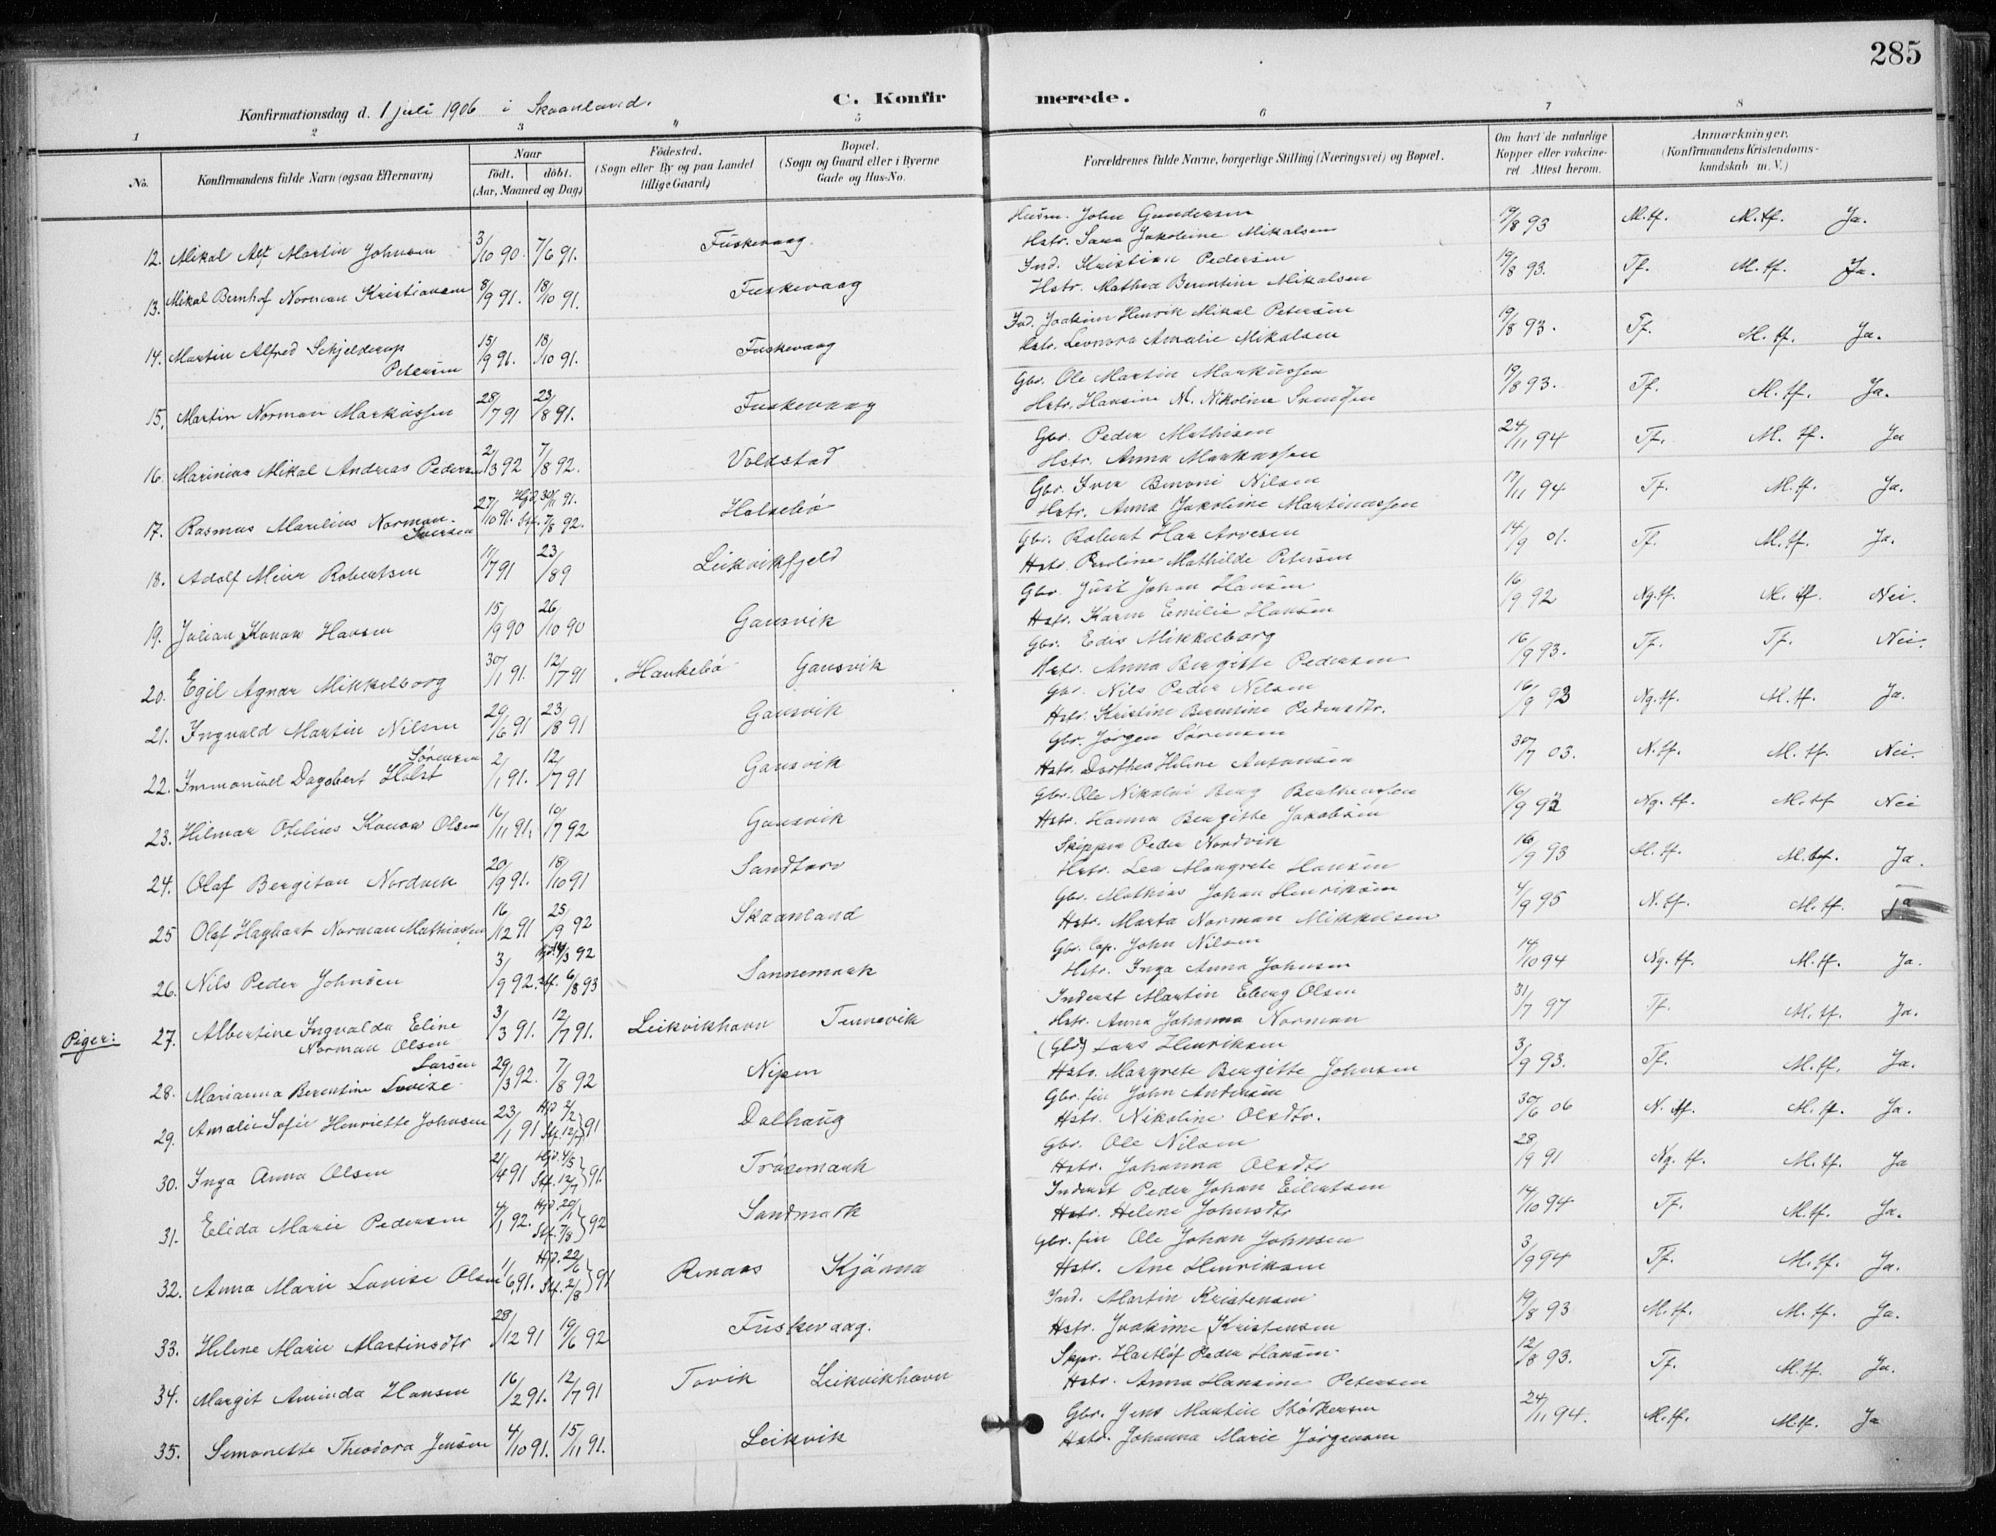 285
Konfirmationsdag d. 1 juli 1906 i Skaanland.
C. Konfirmerede.
1 2 3 4 5 6 7 8
No.
Konfirmandens fulde Navn (ogsaa Efternavn)
Naar
födt. döbt.
(Aar, Maaned og Dag)
Födested.
(Sogn eller By og paa Landet
tillige Gaard)
Bopæl.
(Sogn og Gaard eller i Byerne
Gade og Hus-No.
Forældrenes fulde Navne, borgerlige Stilling (Næringsvei) og Bopæl.
Om havt de naturlige
Kopper eller vakcine-
ret. Attest herom.
Anmærkninger.
(Konfirmandens Kristendoms-
kundskab m. V.)
12. Mikal Alf Martin Johnsen 3/10 90. 7/6 91. Fuskevaag.
Husm. John Gundersen
Hstr. Sara Jakobine Mikalsen 19/8 93 M.tf. M.tf. Ja.
13. Mikal Bernhof Norman Kristiansen 8/9 91. 18/10 91. Fuskevaag
Ind. Kristian Pedersen
Hstr. Mathea Berentine Mikalsen 19/8 93. Tf. M.tf. Ja.
14. Martin Alfred Schjelderup
Petersen 15/9 91. 18/10 91. Fuskevaag
Ind. Joakim Henrik Mikal Petersen
Hstr. Leonora Amalie Mikalsen 19/8 93. Tf. M.tf. Ja.
15. Martin Norman Markussen 28/7 91 23/8 91. Fuskevaag
Gbr. Ole Martin Markussen
Hstr. Hansine M. Nikoline Svendsen 19/8 93. Tf. M.tf. Ja.
16. Marinius Mikal Andreas Pedersen 2/3 92 7/8 92. Voldstad
Gbr. Peder Mathisen
Hstr. Anna Markussen 24/11 94 Tf. M. tf. Ja
17. Rasmus Marelius Norman
Iversen 27/10 91. Hjd. 30/11 91. Stf. 7/8 92. Holsebø
Gbr. Iver Benoni Nilsen
Hstr. Anna Jakobine Martinussen 17/11 94 Tf. M.tf. Ja.
18. Adolf Meier Robertsen 11/7 91 23/89 Leikvikfjeld
Gbr. Robert Haar Arvesen
Hstr. Pauline Mathilde Petersen 14/9 01. Tf. M.tf. Ja.
19. Julian Konow Hansen 15/9 90 26/10 90 Gausvik
Gbr. Just Johan Hansen
Hstr. Karen Emilie Hansen 16/9 92 Ng.tf. M.tf. Nei.
20. Egil Agnar Mikkelborg 30/1 91. 12/7 91 Haukebø Gausvik
Gbr. Edis Mikkelborg
Hstr. Anna Bergitte Pedersen 16/9 93. Tf. Tf. Nei.
21. Ingvald Martin Nilsen 29/6 91 23/8 91 Gausvik
Gbr. Nils Peder Nilsen
Hstr. Kristine Berentine Pedersdtr. 16/9 93 Ng.tf. M.tf. Ja.
22. Immanuel Dagobert Holst
Sørensen 2/1 91. 12/7 91 Gausvik
Gbr. Jørgen Sørensen
Hstr. Dorthea Heline Antonsen 30/7 03. N.tf. M.tf. Nei.
23. Hilmar Otelius Konow Olsen 16/11 91. 10/7 92 Gausvik
Gbr. Ole Nikolai Berg Bertheussen
Hstr. Hanna Bergitte Jakobsen 16/9 92 Ng.tf. M.tf Nei
24. Olaf Bergiton Nordvik 20/9 91. 18/10 91 Sandtorv
Skipper Peder Nordvik
Hstr. Lea Margrete Hansen 16/9 93 M.tf. M.tf. Ja.
25 Olaf Hagbart Norman Mathiassen 16/12 91 25/9 92 Skaanland
Gbr. Mathias Johan Henriksen
Hstr. Marta Norman Mikkelsen 4/9 95 N.tf. M.tf. Ja
26. Nils Peder Johnsen 3/9 92. Hjd. 14/3 92 Stf. 6/8 93 Sannemark
Gbr. lap. John Nilsen
Hstr. Inga Anna Johnsen 14/10 94 Ng.tf. M.tf. Ja.
Piger:
27. Albertine Ingvalda Eline
Norman Olsen 3/3 91. 12/7 91. Leikvikhavn Tennevik
Inderst Martin Eberg Olsen
Hstr. Anna Johanna Norman 31/7 97 Tf. M.tf. Ja.
28. Marianna Berentine Lovise
Larsen 29/3 92. 7/8 92 Nipen
(Gbr) Lars Henriksen
Hstr. Margrete Bergitte Johnsen 3/9 93. Tf. M.tf. Ja.
29. Amalie Sofie Henriette Johnsen 23/1 91 Hjd 2/2 Stf. 12/7 91 Dalhaug
Gbr. fin John Andersen
Hstr. Nikoline Olsdtr. 30/6 06 N. tf. M.tf. Ja.
30. Inga Anna Olsen 21/4 91 Hjd. 4/5 Stf. 12/7 91. Trøsemark
Gbr. Ole Nilsen
Hstr. Johanna Olsdtr 28/9 91 Ng. tf. M.tf. Ja
31. Elida Marie Pedersen 4/1 92. Hjd 20/1 Stf. 7/8 92 Sandmark
Inderst Peder Johan Eilertsen
Hstr. Helene Johnsdtr 14/10 94 Tf. M.tf. Ja.
32. Anna Marie Lovise Olsen 1/6 91. Hjd. 22/6 Stf. 2/8 91 Renaas Kjønna
Gbr. fin Ole Johan Johnsen
Hstr. Ane Henriksen 3/9 94 Tf. M.tf. Ja.
33. Helene Marie Martinsdtr 28/12 91 19/6 92 Fuskevaag.
Ind. Martin Kristensen
Hstr. Joakime Kristensen 19/8 93 M.tf. M.tf. Ja.
34. Margit Aminda Hansen 16/2 91. 12/7 91 Tovik Leikvikhavn
Skpr. Hartlof Peder Hansen
Hstr. Anna Hansine Petersen 12/8 93. Tf. M.tf. Ja.
35. Simonette Theodora Jensen 4/10 91. 15/11 91. Leikvik
Gbr. Jens Martin Størkersen
Hstr. Johanna Marie Jørgensen 24/11 94. M.tf. M.tf. Ja